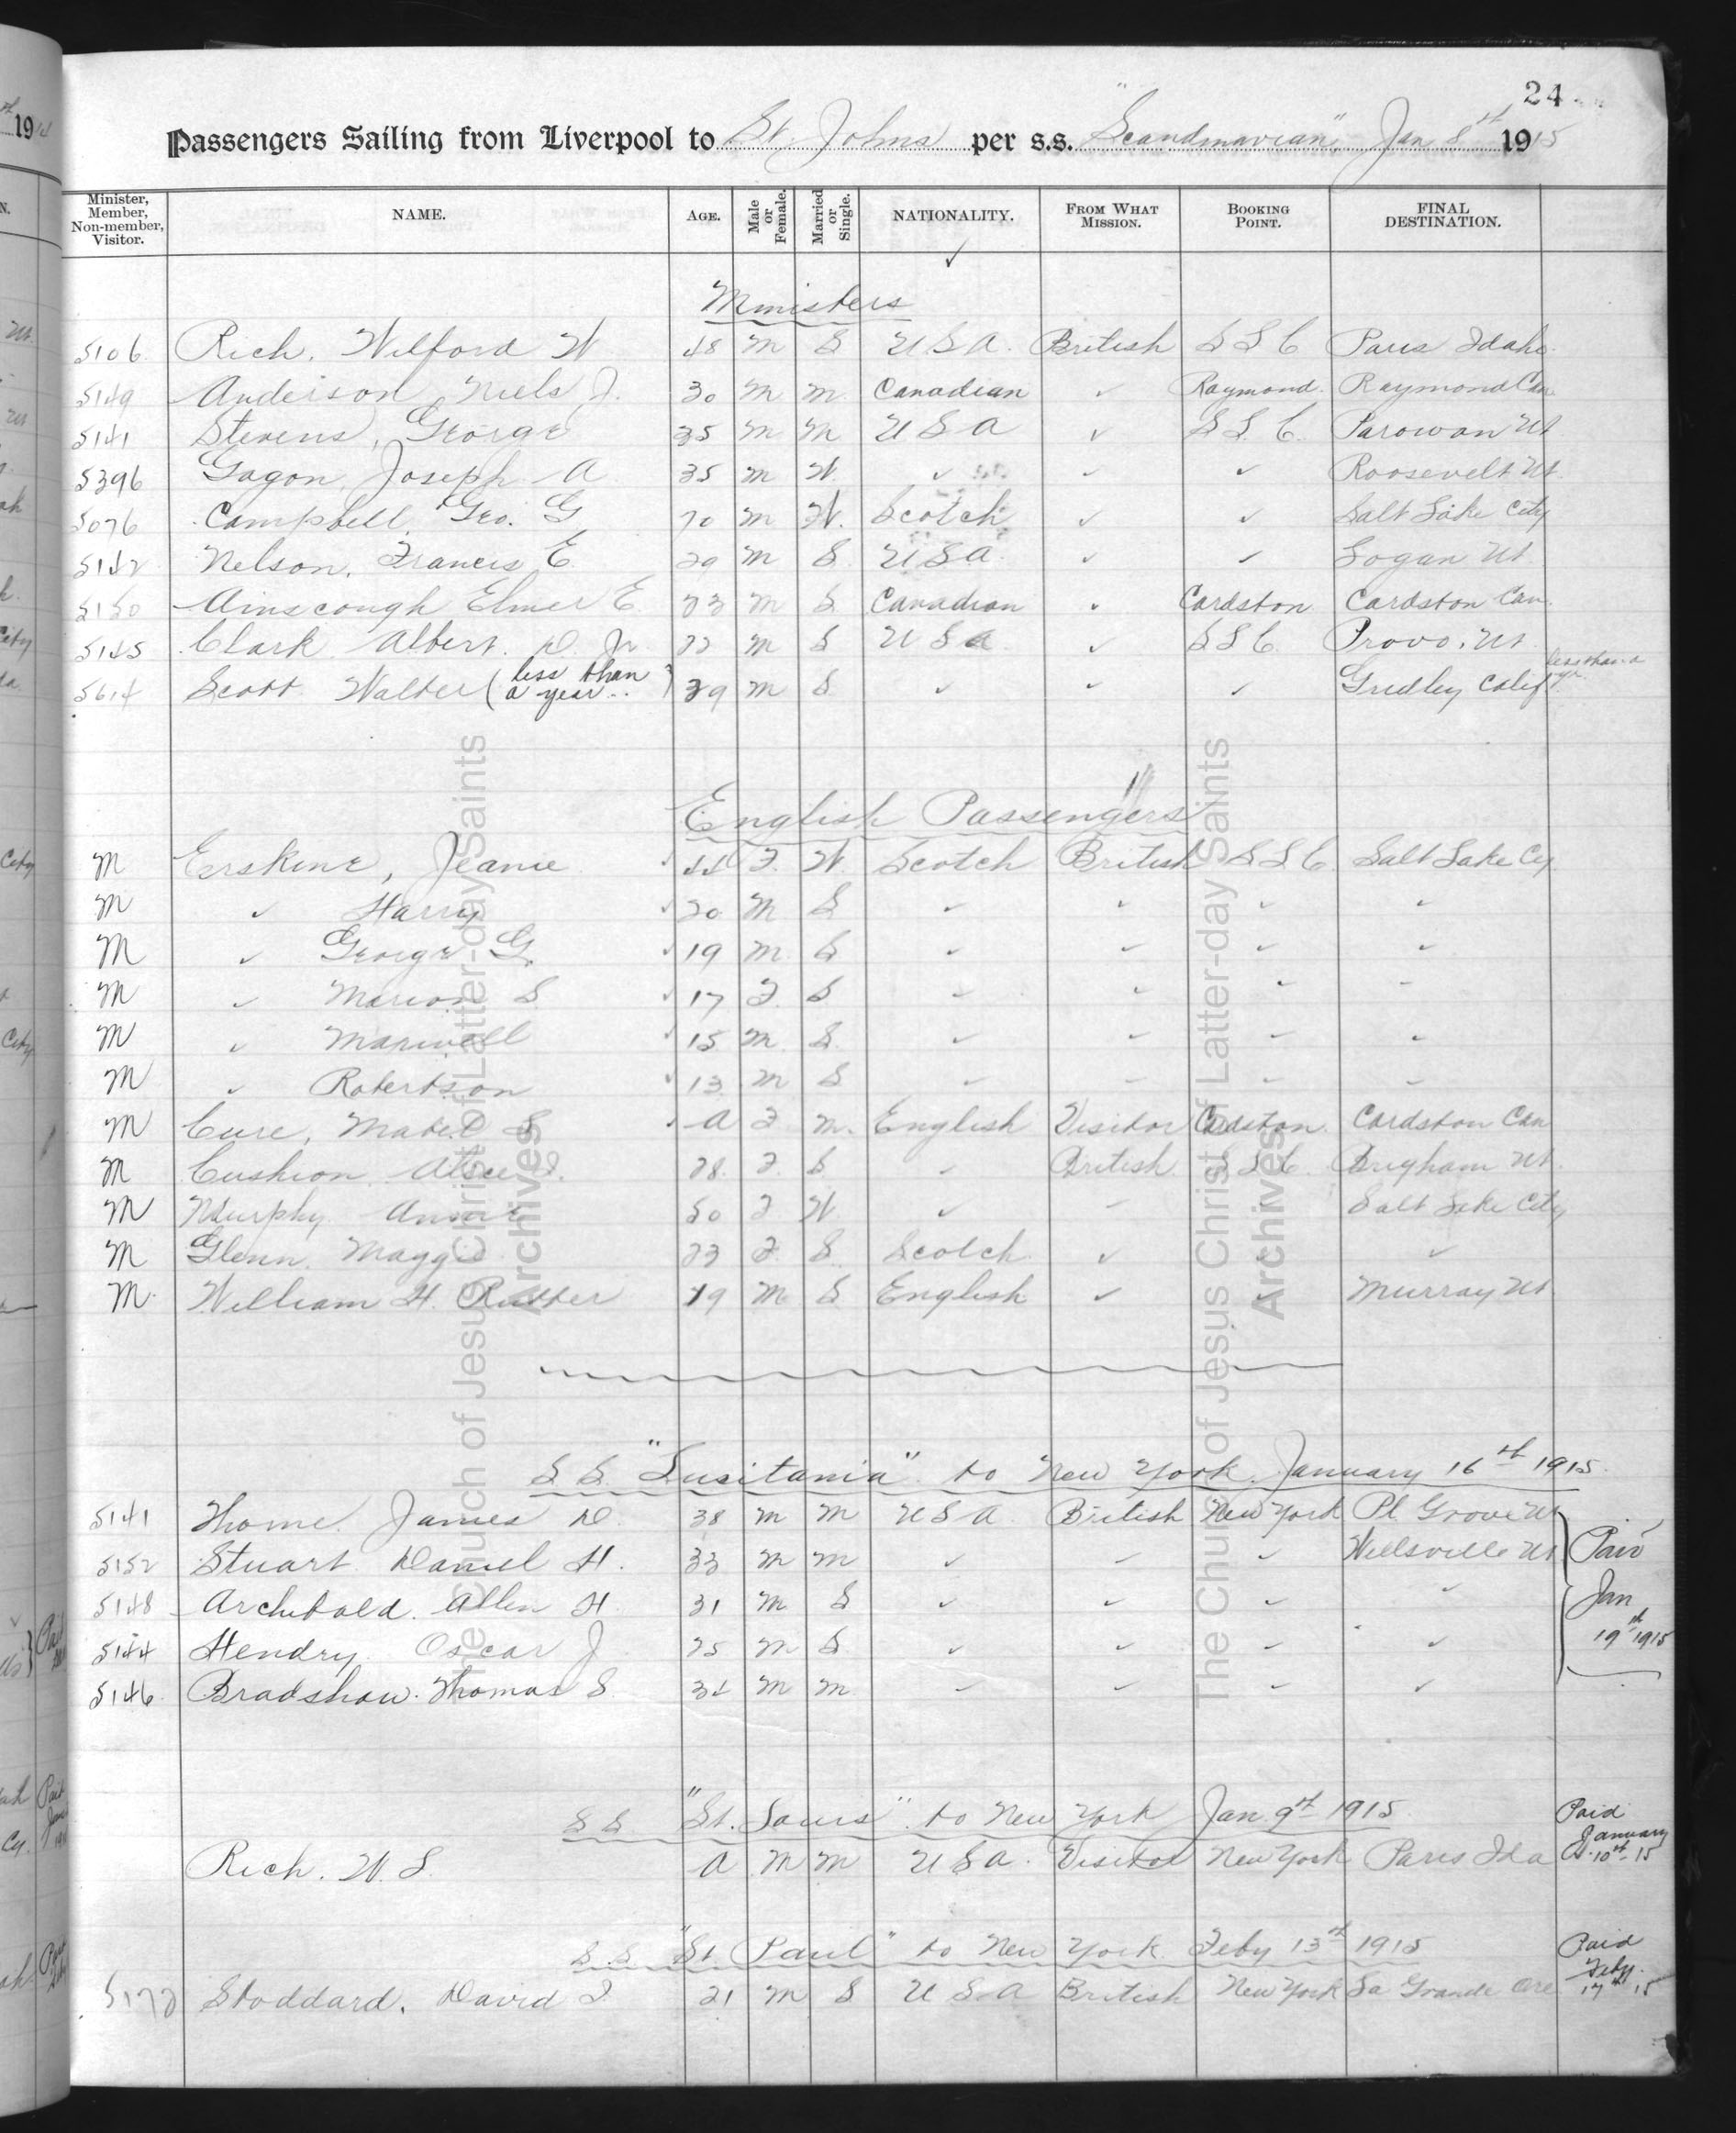 24
Passengers Sailing from Liverpool to St Johns per s.s. "Scandinavian", Jan 8th 1915
Minister, Member, Non-member, Visitor. NAME. AGE. Male or Female. Married or Single. NATIONALITY. FROM WHAT MISSION. BOOKING POINT. FINAL DESTINATION.
✓
Ministers
5106 Rich, Wilford W 48 m S USA. British S L C Paris Idaho.
5149 Anderson, Niels J. 30 m m Canadian ✓ Raymond. Raymond Can
5141 Stevens, George 35 m m USA ✓ S L C. Parowan Ut
5396 Gagon, Joseph A 35 m W. ✓ ✓ ✓ Roosevelt Ut.
5076 Campbell, Geo. G 70 m W. Scotch ✓ ✓ Salt Lake City
5142 Nelson, Francis E. 29 m S. USA ✓ ✓ Logan Ut.
5150 Ainscough Elmer E. 23 m S. Canadian ✓ Cardston Cardston Can.
5145 Clark Albert. D. Jr. 22 m S USA ✓ S L C. Provo. Ut
5614 Scott Walter (less than a year..) 29 m S. ✓ ✓ ✓ Gridley Calif less than a yr.
English Passengers
M Erskine, Jeanie 44 F. W. Scotch British S L C Salt Lake Cy.
M ✓ Harry 20 m. S ✓ ✓ ✓ ✓
M ✓ George G. 19 m. S ✓ ✓ ✓ ✓
M ✓ Marion S 17 F. S. ✓ ✓ ✓ ✓
M ✓ Maxwell 15 m. S. ✓ ✓ ✓ ✓
M ✓ Robertson 13 m S ✓ ✓ ✓ ✓
M Cure, Mabel S A F m. English Visitor Cardston. Cardston Can
M Cushion, Alice 28. F. S ✓ British. S L C. Brigham Ut.
M Murphy Annie 50 F W. ✓ ✓ Salt Lake City
M Glenn, Maggie 23 F. S. Scotch ✓ ✓
M. William H. Rutter 19 m S English ✓ ✓ Murray Ut.
S S. "Lusitania" to New York, January 16th 1915.
5141 Thorne. James D. 38 m m USA. British New York Pl. Grove Ut
5152 Stuart Daniel H. 33 m m ✓ ✓ ✓ Wellsville Ut Paid
5148 Archibald. Allen H. 31 m S ✓ ✓ ✓ ✓ Jan
5144 Hendry. Oscar J 25 m S ✓ ✓ ✓ ✓ 19th 1915
5146 Bradshaw. Thomas S. 34 m m ✓ ✓ ✓ ✓
S S. "St. Louis" to New York Jan 9th 1915. Paid January
Rich. W. L. A m m USA. Visitor New York Paris Ida 10th-15
S. S. "St. Paul" to New York Feby 13th 1915 Paid Feby.
Stoddard, David 21 m S USA British New York La Grande Ore 17th 15
The Church of Jesus Christ of Latter-day Saints Archives
The Church of Jesus Christ of Latter-day Saints Archives